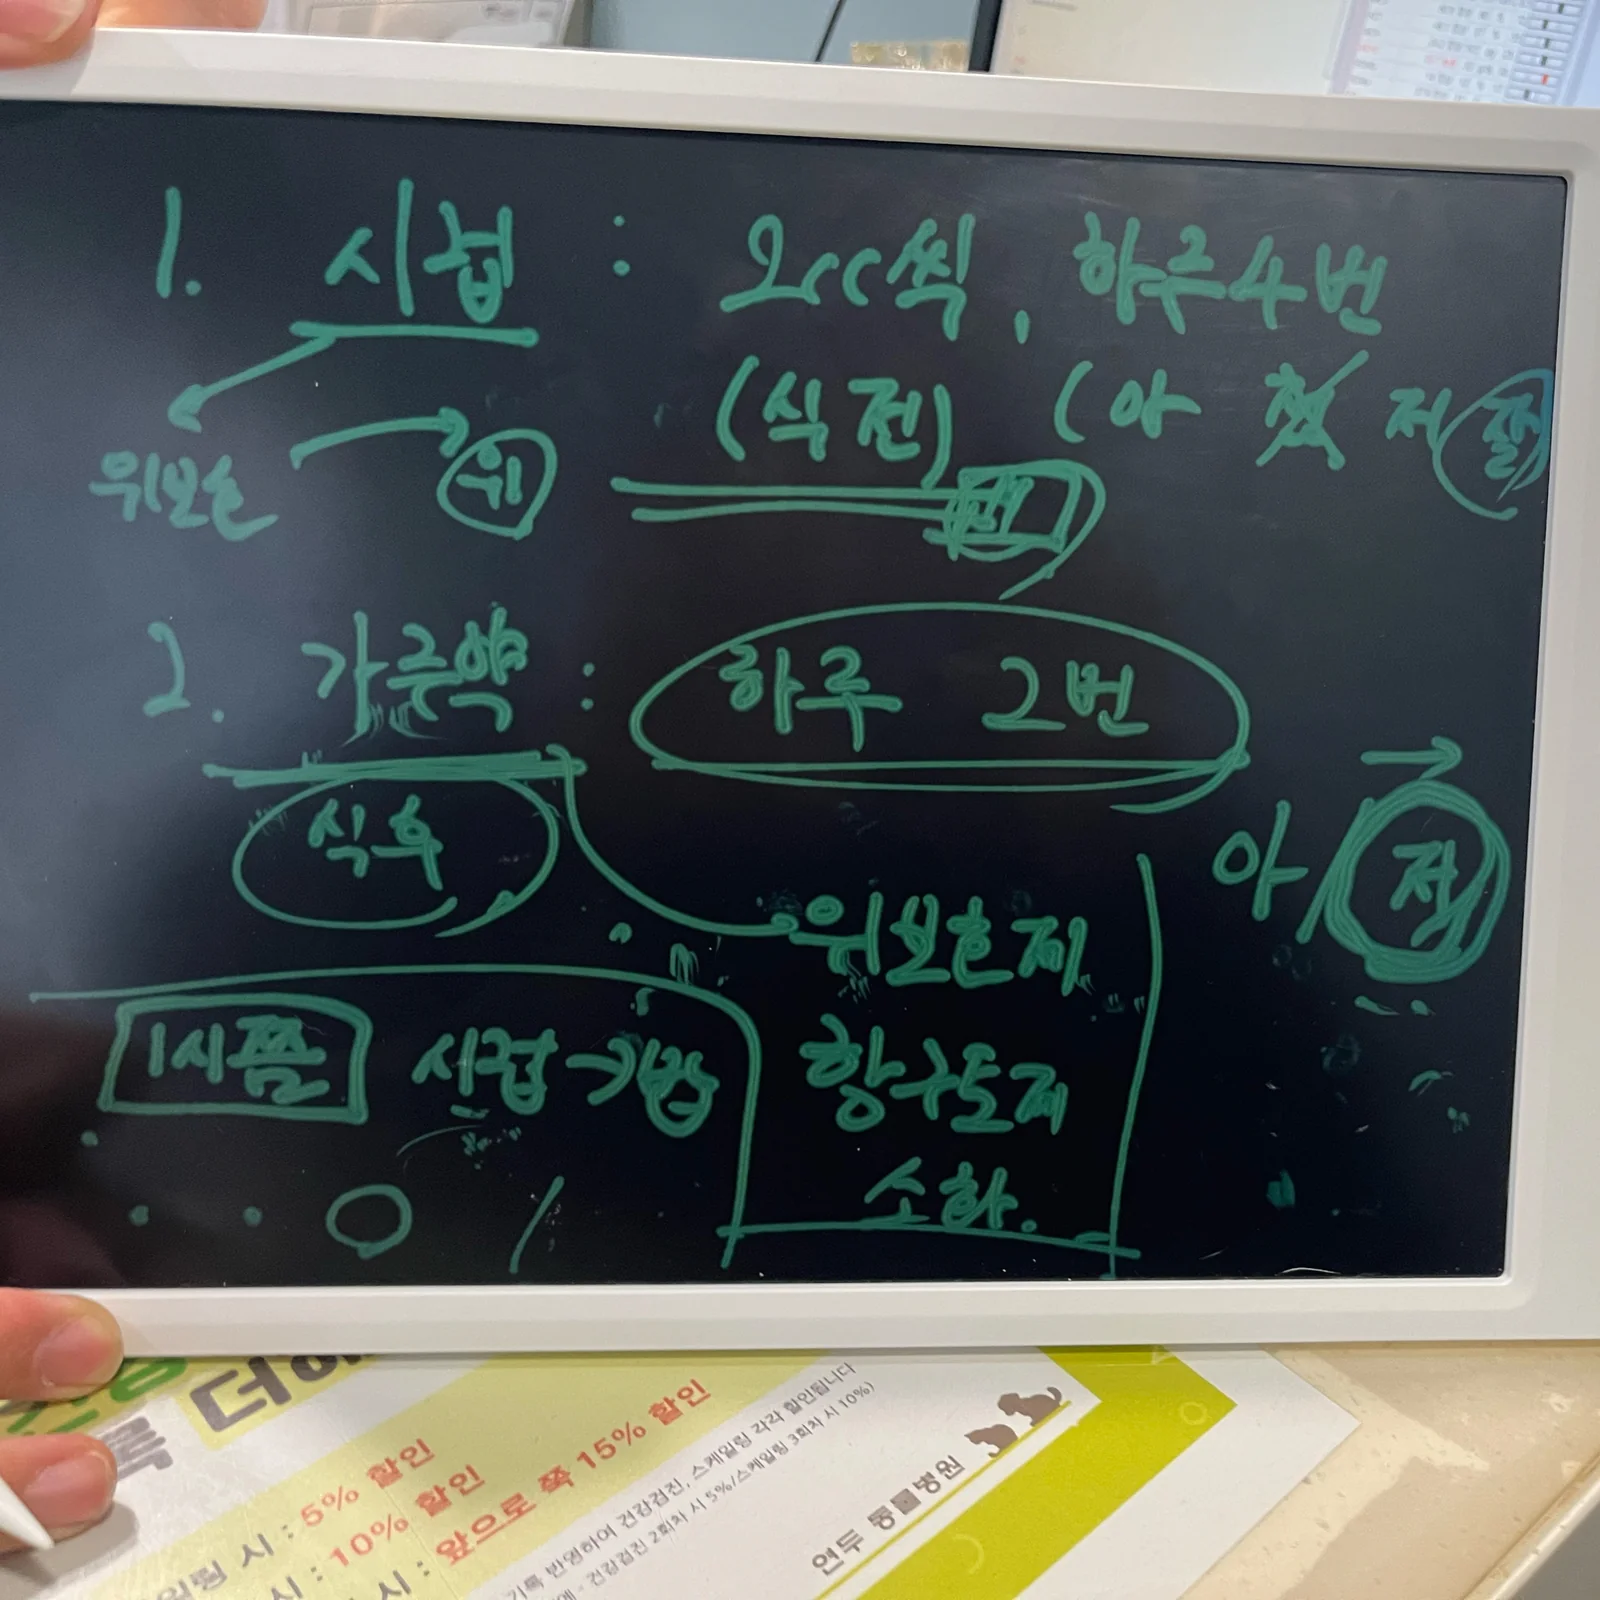 1. 시럽 : 2cc씩, 하루 4번
(식전) (아 저
위보호 위
2. 가루약 : 하루 2번
식후
아/저
위보호제
1시쯤 시럽 → 밥
항구토제
소화.
더
시 : 5% 할인
시 : 10% 할인
시 : 앞으로 쭉 15% 할인
기록 반영하여 건강검진, 스케일링 각각 할인됩니다
건강검진 2회차 시 5%/스케일링 3회차 시 10%)
연두 동물병원